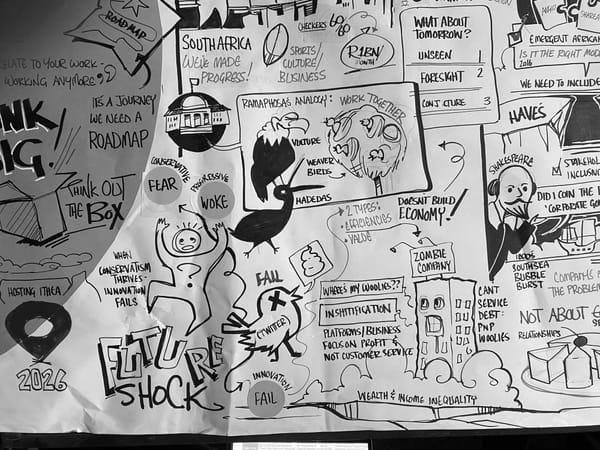 ROAD MAP
RELATE TO YOUR WORK -
WORKING ANYMORE
IT'S A JOURNEY
WE NEED A
ROADMAP
THINK OUT
THE BOX
HOSTING
2026
SOUTH AFRICA
WE'VE MADE
PROGRESS!
SPORTS/
CULTURE/
BUSINESS
CHECKERS 60/60
R1BN
MONTH
WHAT ABOUT
TOMORROW?
UNSEEN 1
FORESIGHT 2
CONJECTURE 3
EMERGENT AFRICAN
IS IT THE RIGHT
WE NEED TO INCLUDE
HAVE'S
RAMAPHOSA'S ANALOGY: WORK TOGETHER
VULTURE
WEAVER
BIRDS
HADEDAS
DOESN'T BUILD
ECONOMY!
CONSERVATIVE
FEAR
PROGRESSIVE
WOKE
WHEN
CONSERVATISM
THRIVES -
INNOVATION
FAILS
FUTURE
SHOCK
2 TYPES:
EFFICIENCIES
VALUE
FAIL
(TWITTER)
INNOVATION
FAIL
WHERE'S MY WOOLIES??
INSHITIFICATION
PLATFORMS/BUSINESS
FOCUS ON PROFIT &
NOT CUSTOMER SERVICE
ZOMBIE
COMPANY
CANT
SERVICE
DEBT:
PNP
WOOLIES
WEALTH & INCOME INEQUALITY
SHAKESPEARE
DID I COIN THE
'CORPORATE
SOUTHSEA
BUBBLE
BURST
THE PROBLEM
NOT ABOUT
RELATIONSHIPS